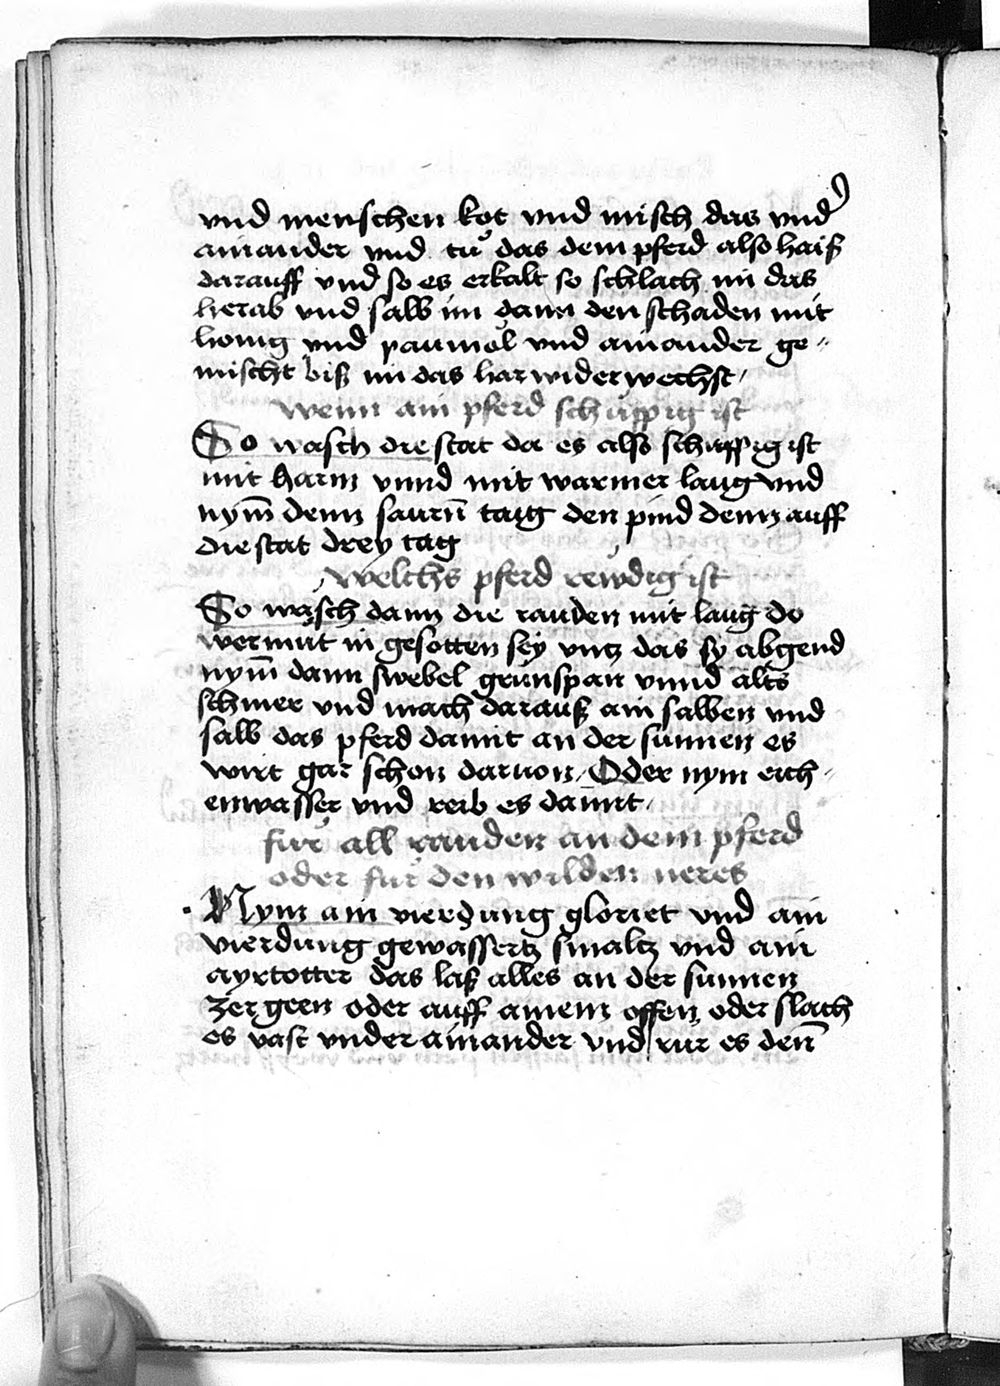 vnd menschen kot vnd misch das vnd͛
ainander vnd tů das dem pferd also haiß
darauff vnd so es erkalt so schlach im das
herab vnd salb im dann den schaden mit
honig vnd paumöl vnd ainander ge„
mischt biß im das har wider wechst /
wenn ain pferd schüppig ist
So wasch die stat da es also schuppig ist
mit harm vnnd mit warmer laug vnd
nym̄ denn saurn̄ taig den pind denn auff
die stat drey tag
welichs pferd rewdig ist
So wasch dann die rauden mit laug do
wermut in gesotten sey vntz das sy abgend
nym̄ dann swebel grünspan vnnd alts
schmer vnd mach darauß ain salben vnd
salb das pferd damit an der sunnen es
wirt gar schon daruon / Oder nym eich„
enwasser vnd reib es damit /
für all rauden an dem pferd
oder für den wilden neres
Nym ain vierdung gloriet vnd ain
vierdung gewassertz smaltz vnd ain
ayrtotter das laß alles an der sunnen
zergeen oder auff ainem offen oder slach
es vast vnder ainander vnd rür es den̄